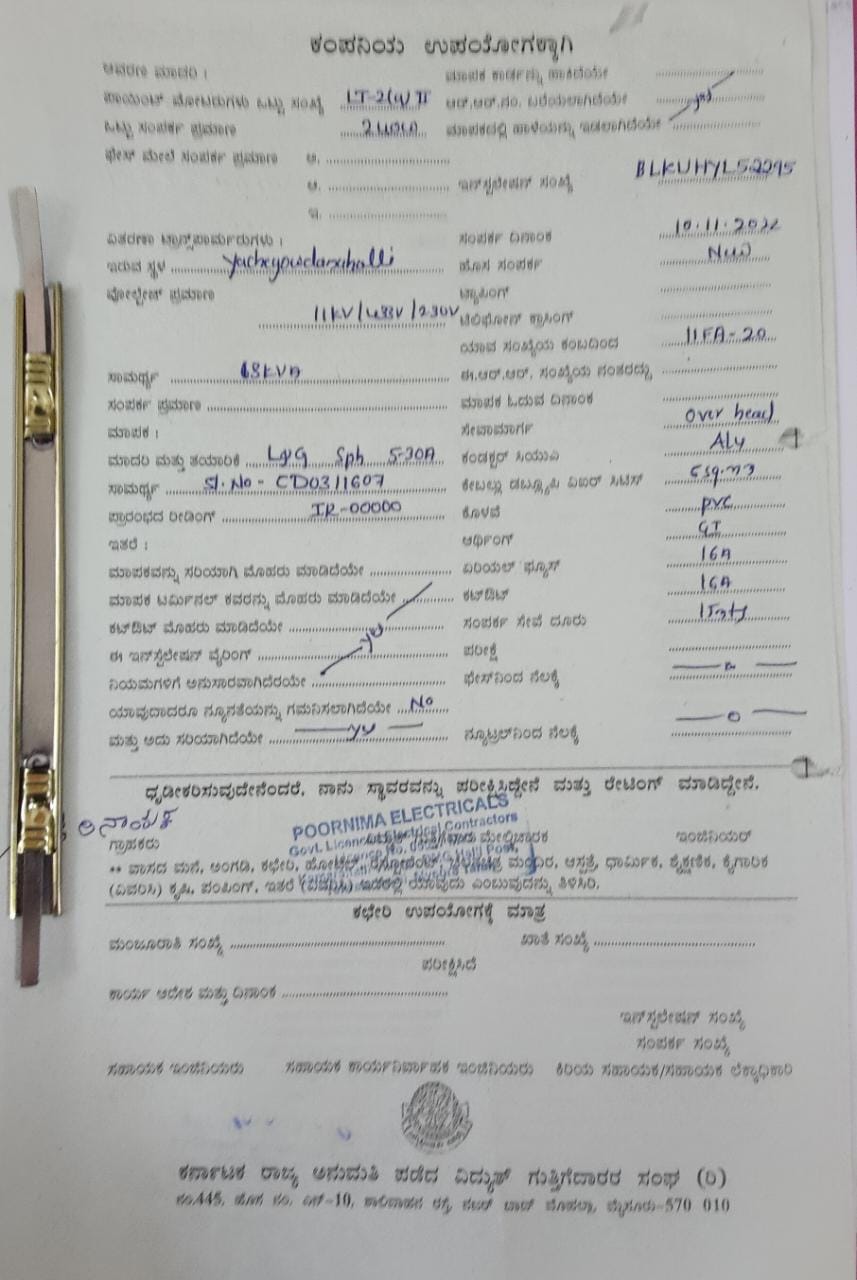 ಕಂಪನಿಯ ಉಪಯೋಗಕ್ಕಾಗಿ
ಆವರಣ ಮಾದರಿ : ಮಾಪಕ ಕಾರ್ಡನ್ನು ಹಾಕಿದೆಯೇ
ಪಾಯಿಂಟ್ ಮೋಟರುಗಳು ಒಟ್ಟು ಸಂಖ್ಯೆ LT-2(a) II ಆರ್.ಆರ್.ನಂ. ಬರೆಯಲಾಗಿದೆಯೇ yes
ಒಟ್ಟು ಸಂಪರ್ಕ ಪ್ರಮಾಣ ಮಾಪಕದಲ್ಲಿ ಹಾಳೆಯನ್ನು ಇಡಲಾಗಿದೆಯೇ
ಫೇಸ್ ಮೇಲೆ ಸಂಪರ್ಕ ಪ್ರಮಾಣ ಅ.
ಆ. ಇನ್‌ಸ್ಟಲೇಷನ್ ಸಂಖ್ಯೆ BLKUHYL52295
ಇ.
ವಿತರಣಾ ಟ್ರಾನ್ಸ್‌ಫಾರ್ಮರುಗಳು : ಸಂಪರ್ಕ ದಿನಾಂಕ 10.11.2022
ಇರುವ ಸ್ಥಳ Yachegowdanahalli ಹೊಸ ಸಂಪರ್ಕ New
ವೋಲ್ಟೇಜ್ ಪ್ರಮಾಣ ಟ್ಯಾಪಿಂಗ್
11KV/433V/230V ಟೆಲಿಫೋನ್ ಕ್ರಾಸಿಂಗ್
ಯಾವ ಸಂಖ್ಯೆಯ ಕಂಬದಿಂದ 11FA-20
ಸಾಮರ್ಥ್ಯ 63KVA ಈ.ಆರ್.ಆರ್. ಸಂಖ್ಯೆಯ ನಂತರದ್ದು
ಸಂಪರ್ಕ ಪ್ರಮಾಣ ಮಾಪಕ ಓದುವ ದಿನಾಂಕ
ಮಾಪಕ : ಸೇವಾಮಾರ್ಗ Over head
ಮಾದರಿ ಮತ್ತು ತಯಾರಿಕೆ L&G Sph 5-30A ಕಂಡಕ್ಟರ್ Aly
ಸಾಮರ್ಥ್ಯ Sl.No - CD0311607 6sq.m
ಪ್ರಾರಂಭದ ರೀಡಿಂಗ್ IR-00000 ಕೊಳವೆ PVC
ಇತರೆ : ಅರ್ಥಿಂಗ್ GI
ಮಾಪಕವನ್ನು ಸರಿಯಾಗಿ ಮೊಹರು ಮಾಡಿದೆಯೇ ಏರಿಯಲ್ ಫ್ಯೂಸ್ 16A
ಮಾಪಕ ಟರ್ಮಿನಲ್ ಕವರನ್ನು ಮೊಹರು ಮಾಡಿದೆಯೇ ಕಟ್‌ಔಟ್ 16A
ಕಟ್‌ಔಟ್ ಮೊಹರು ಮಾಡಿದೆಯೇ ಸಂಪರ್ಕ ಸೇವೆ ದೂರು
ಈ ಇನ್‌ಸ್ಟಲೇಷನ್ ವೈರಿಂಗ್ yes ಪರೀಕ್ಷೆ
ನಿಯಮಗಳಿಗೆ ಅನುಸಾರವಾಗಿದೆರಯೇ ಫೇಸ್‌ನಿಂದ ನೆಲಕ್ಕೆ
ಯಾವುದಾದರೂ ನ್ಯೂನತೆಯನ್ನು ಗಮನಿಸಲಾಗಿದೆಯೇ No
ಮತ್ತು ಅದು ಸರಿಯಾಗಿದೆಯೇ yes ನ್ಯೂಟ್ರಲ್‌ನಿಂದ ನೆಲಕ್ಕೆ
ಧೃಡೀಕರಿಸುವುದೇನೆಂದರೆ, ನಾನು ಸ್ಥಾವರವನ್ನು ಪರೀಕ್ಷಿಸಿದ್ದೇನೆ ಮತ್ತು ರೇಟಿಂಗ್ ಮಾಡಿದ್ದೇನೆ.
ವಿನಾಯಕ
POORNIMA ELECTRICALS
Govt. Licenced Electrical Contractors
ಗ್ರಾಹಕರು ಮೇಲ್ವಿಚಾರಕ ಇಂಜಿನಿಯರ್
** ವಾಸದ ಮನೆ, ಅಂಗಡಿ, ಕಛೇರಿ, ಹೋಟೆಲ್, ಮಂದಿರ, ಆಸ್ಪತ್ರೆ, ಧಾರ್ಮಿಕ, ಶೈಕ್ಷಣಿಕ, ಕೈಗಾರಿಕ
(ವಿವರಿಸಿ) ಕೃಷಿ, ಪಂಪಿಂಗ್, ಇತರೆ (ವಿವರಿಸಿ) ಇದರಲ್ಲಿ ಯಾವುದು ಎಂಬುವುದನ್ನು ತಿಳಿಸಿರಿ.
ಕಛೇರಿ ಉಪಯೋಗಕ್ಕೆ ಮಾತ್ರ
ಮಂಜೂರಾತಿ ಸಂಖ್ಯೆ ಖಾತೆ ಸಂಖ್ಯೆ
ಪರೀಕ್ಷಿಸಿದೆ
ಕಾರ್ಯ ಆದೇಶ ಮತ್ತು ದಿನಾಂಕ
ಇನ್‌ಸ್ಟಲೇಷನ್ ಸಂಖ್ಯೆ
ಸಂಪರ್ಕ ಸಂಖ್ಯೆ
ಸಹಾಯಕ ಇಂಜಿನಿಯರು ಸಹಾಯಕ ಕಾರ್ಯನಿರ್ವಾಹಕ ಇಂಜಿನಿಯರು ಕಿರಿಯ ಸಹಾಯಕ/ಸಹಾಯಕ ಲೆಕ್ಕಾಧಿಕಾರಿ
ಕರ್ನಾಟಕ ರಾಜ್ಯ ಅನುಮತಿ ಪಡೆದ ವಿದ್ಯುತ್ ಗುತ್ತಿಗೆದಾರರ ಸಂಘ (ರಿ)
ನಂ.445, ಹೊಸ ನಂ. ಎಸ್-10, ಕಾಳಿದಾಸ ರಸ್ತೆ, ಮೈಸೂರು-570 010